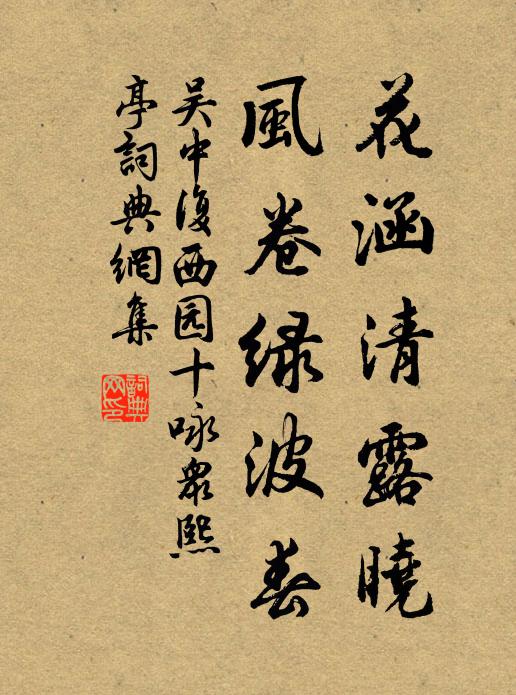 花涵清露曉
風卷緑波春
吴中復西园十咏衆熙
亭詞典網集
詞典
网印